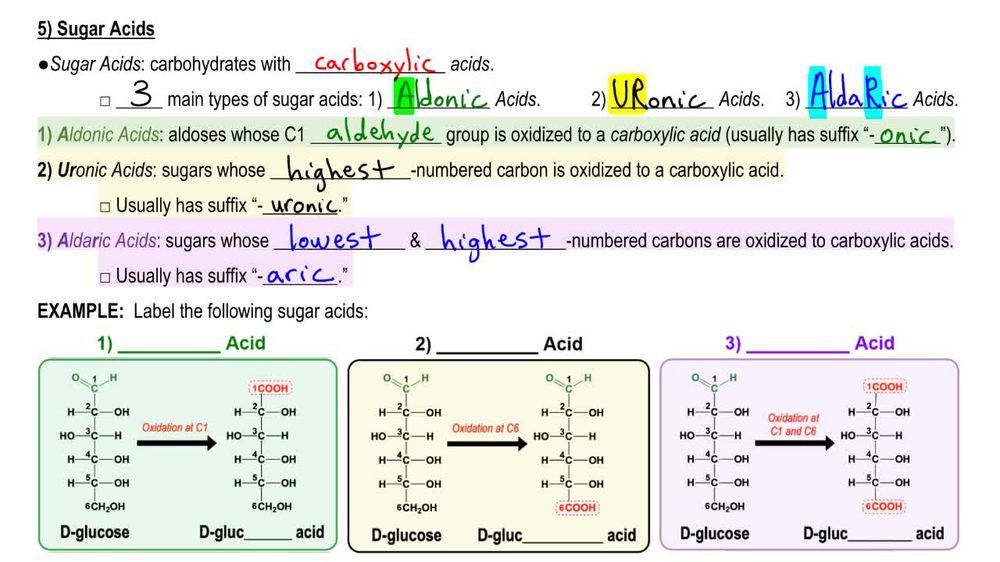 5) Sugar Acids
●Sugar Acids: carbohydrates with carboxylic acids.
□ 3 main types of sugar acids: 1) Aldonic Acids. 2) URonic Acids. 3) AldaRic Acids.
1) Aldonic Acids: aldoses whose C1 aldehyde group is oxidized to a carboxylic acid (usually has suffix “-onic”).
2) Uronic Acids: sugars whose highest-numbered carbon is oxidized to a carboxylic acid.
□ Usually has suffix “-uronic.”
3) Aldaric Acids: sugars whose lowest & highest-numbered carbons are oxidized to carboxylic acids.
□ Usually has suffix “-aric.”
EXAMPLE: Label the following sugar acids:
1) __________ Acid 2) __________ Acid 3) __________ Acid
O 1 H 1COOH O 1 H O 1 H O 1 H 1COOH
C C C C
H 2C OH H 2C OH H 2C OH H 2C OH H 2C OH H 2C OH
Oxidation at C1 Oxidation at C6 Oxidation at
C1 and C6
HO 3C H HO 3C H HO 3C H HO 3C H HO 3C H HO 3C H
H 4C OH H 4C OH H 4C OH H 4C OH H 4C OH H 4C OH
H 5C OH H 5C OH H 5C OH H 5C OH H 5C OH H 5C OH
6CH₂OH 6CH₂OH 6CH₂OH 6COOH 6CH₂OH 6COOH
D-glucose D-gluc______ acid D-glucose D-gluc__________ acid D-glucose D-gluc________ acid